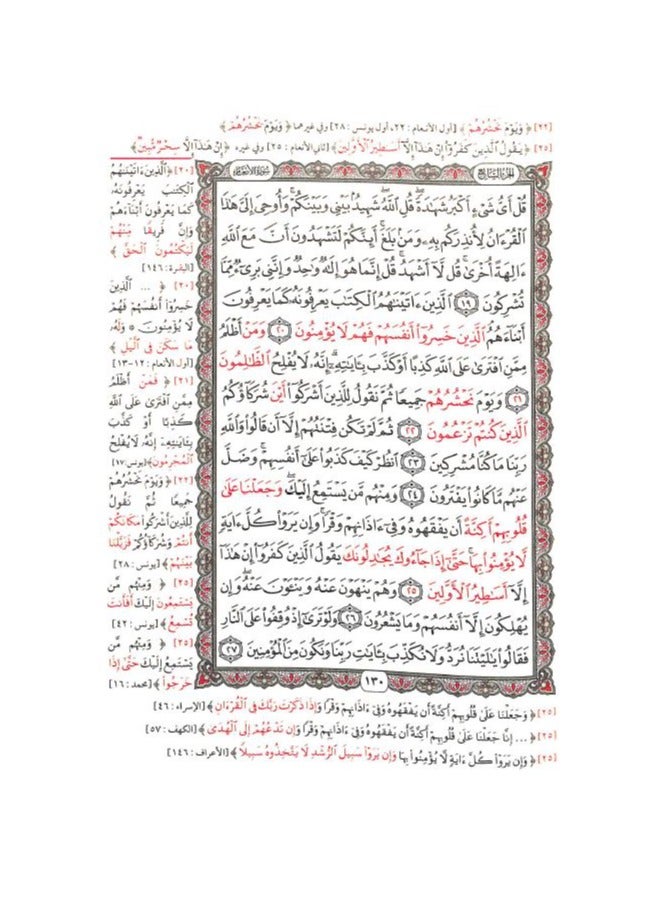 [٢٢] ﴿ وَيَوْمَ نَحْشُرُهُمْ ﴾ [أول الأنعام : ٢٢، أول يونس : ٢٨] وفي غيرهما ﴿ وَيَوْمَ يَحْشُرُهُمْ ﴾
[٢٥] ﴿ يَقُولُ الَّذِينَ كَفَرُوٓا۟ إِنْ هَٰذَآ إِلَّآ أَسَٰطِيرُ الْأَوَّلِينَ ﴾ [ثاني الأنعام : ٢٥] وفي غيره ﴿ إِنْ هَٰذَآ إِلَّا سِحْرٌ مُّبِينٌ ﴾
الجزء السابع
سورة الأنعام
قُلْ أَىُّ شَىْءٍ أَكْبَرُ شَهَٰدَةً ۖ قُلِ ٱللَّهُ ۖ شَهِيدٌۢ بَيْنِى وَبَيْنَكُمْ ۚ وَأُوحِىَ إِلَىَّ هَٰذَا
ٱلْقُرْءَانُ لِأُنذِرَكُم بِهِۦ وَمَنۢ بَلَغَ ۚ أَئِنَّكُمْ لَتَشْهَدُونَ أَنَّ مَعَ ٱللَّهِ
ءَالِهَةً أُخْرَىٰ ۚ قُل لَّآ أَشْهَدُ ۚ قُلْ إِنَّمَا هُوَ إِلَٰهٌ وَٰحِدٌ وَإِنَّنِى بَرِىٓءٌ مِّمَّا
تُشْرِكُونَ ١٩ ٱلَّذِينَ ءَاتَيْنَٰهُمُ ٱلْكِتَٰبَ يَعْرِفُونَهُۥ كَمَا يَعْرِفُونَ
أَبْنَآءَهُمُ ٱلَّذِينَ خَسِرُوٓا۟ أَنفُسَهُمْ فَهُمْ لَا يُؤْمِنُونَ ٢٠ وَمَنْ أَظْلَمُ
مِمَّنِ ٱفْتَرَىٰ عَلَى ٱللَّهِ كَذِبًا أَوْ كَذَّبَ بِـَٔايَٰتِهِۦٓ ۗ إِنَّهُۥ لَا يُفْلِحُ ٱلظَّٰلِمُونَ
٢١ وَيَوْمَ نَحْشُرُهُمْ جَمِيعًا ثُمَّ نَقُولُ لِلَّذِينَ أَشْرَكُوٓا۟ أَيْنَ شُرَكَآؤُكُمُ
ٱلَّذِينَ كُنتُمْ تَزْعُمُونَ ٢٢ ثُمَّ لَمْ تَكُن فِتْنَتُهُمْ إِلَّآ أَن قَالُوا۟ وَٱللَّهِ
رَبِّنَا مَا كُنَّا مُشْرِكِينَ ٢٣ ٱنظُرْ كَيْفَ كَذَبُوا۟ عَلَىٰٓ أَنفُسِهِمْ ۚ وَضَلَّ
عَنْهُم مَّا كَانُوا۟ يَفْتَرُونَ ٢٤ وَمِنْهُم مَّن يَسْتَمِعُ إِلَيْكَ ۖ وَجَعَلْنَا عَلَىٰ
قُلُوبِهِمْ أَكِنَّةً أَن يَفْقَهُوهُ وَفِىٓ ءَاذَانِهِمْ وَقْرًا ۚ وَإِن يَرَوْا۟ كُلَّ ءَايَةٍ
لَّا يُؤْمِنُوا۟ بِهَا ۚ حَتَّىٰٓ إِذَا جَآءُوكَ يُجَٰدِلُونَكَ يَقُولُ ٱلَّذِينَ كَفَرُوٓا۟ إِنْ هَٰذَآ
إِلَّآ أَسَٰطِيرُ ٱلْأَوَّلِينَ ٢٥ وَهُمْ يَنْهَوْنَ عَنْهُ وَيَنْـَٔوْنَ عَنْهُ ۖ وَإِن
يُهْلِكُونَ إِلَّآ أَنفُسَهُمْ وَمَا يَشْعُرُونَ ٢٦ وَلَوْ تَرَىٰٓ إِذْ وُقِفُوا۟ عَلَى ٱلنَّارِ
فَقَالُوا۟ يَٰلَيْتَنَا نُرَدُّ وَلَا نُكَذِّبَ بِـَٔايَٰتِ رَبِّنَا وَنَكُونَ مِنَ ٱلْمُؤْمِنِينَ ٢٧
١٣٠
[٢٠] ﴿ الَّذِينَ ءَاتَيْنَٰهُمُ
الْكِتَٰبَ يَعْرِفُونَهُۥ
كَمَا يَعْرِفُونَ أَبْنَآءَهُمْ
وَإِنَّ فَرِيقًا مِّنْهُمْ
لَيَكْتُمُونَ الْحَقَّ ﴾
[البقرة : ١٤٦]
[٢٠] ﴿ ... الَّذِينَ
خَسِرُوٓا۟ أَنفُسَهُمْ فَهُمْ
لَا يُؤْمِنُونَ * وَلَهُۥ
مَا سَكَنَ فِى الَّيْلِ ﴾
[أول الأنعام : ١٢-١٣]
[٢١] ﴿ فَمَنْ أَظْلَمُ
مِمَّنِ افْتَرَىٰ عَلَى اللَّهِ
كَذِبًا أَوْ كَذَّبَ
بِـَٔايَٰتِهِۦٓ إِنَّهُۥ لَا يُفْلِحُ
الْمُجْرِمُونَ ﴾ [يونس : ١٧]
[٢٢] ﴿ وَيَوْمَ نَحْشُرُهُمْ
جَمِيعًا ثُمَّ نَقُولُ
لِلَّذِينَ أَشْرَكُوا۟ مَكَانَكُمْ
أَنتُمْ وَشُرَكَآؤُكُمْ فَزَيَّلْنَا
بَيْنَهُمْ ﴾ [يونس : ٢٨]
[٢٥] ﴿ وَمِنْهُم مَّن
يَسْتَمِعُونَ إِلَيْكَ أَفَأَنتَ
تُسْمِعُ ﴾ [يونس : ٤٢]
[٢٥] ﴿ وَمِنْهُم مَّن
يَسْتَمِعُ إِلَيْكَ حَتَّىٰٓ إِذَا
خَرَجُوا۟ ﴾ [محمد : ١٦]
[٢٥] ﴿ وَجَعَلْنَا عَلَىٰ قُلُوبِهِمْ أَكِنَّةً أَن يَفْقَهُوهُ وَفِىٓ ءَاذَانِهِمْ وَقْرًا وَإِذَا ذَكَرْتَ رَبَّكَ فِى الْقُرْءَانِ ﴾ [الإسراء : ٤٦]
[٢٥] ﴿ ... إِنَّا جَعَلْنَا عَلَىٰ قُلُوبِهِمْ أَكِنَّةً أَن يَفْقَهُوهُ وَفِىٓ ءَاذَانِهِمْ وَقْرًا وَإِن تَدْعُهُمْ إِلَى الْهُدَىٰ ﴾ [الكهف : ٥٧]
[٢٥] ﴿ وَإِن يَرَوْا۟ كُلَّ ءَايَةٍ لَّا يُؤْمِنُوا۟ بِهَا وَإِن يَرَوْا۟ سَبِيلَ الرُّشْدِ لَا يَتَّخِذُوهُ سَبِيلًا ﴾ [الأعراف : ١٤٦]